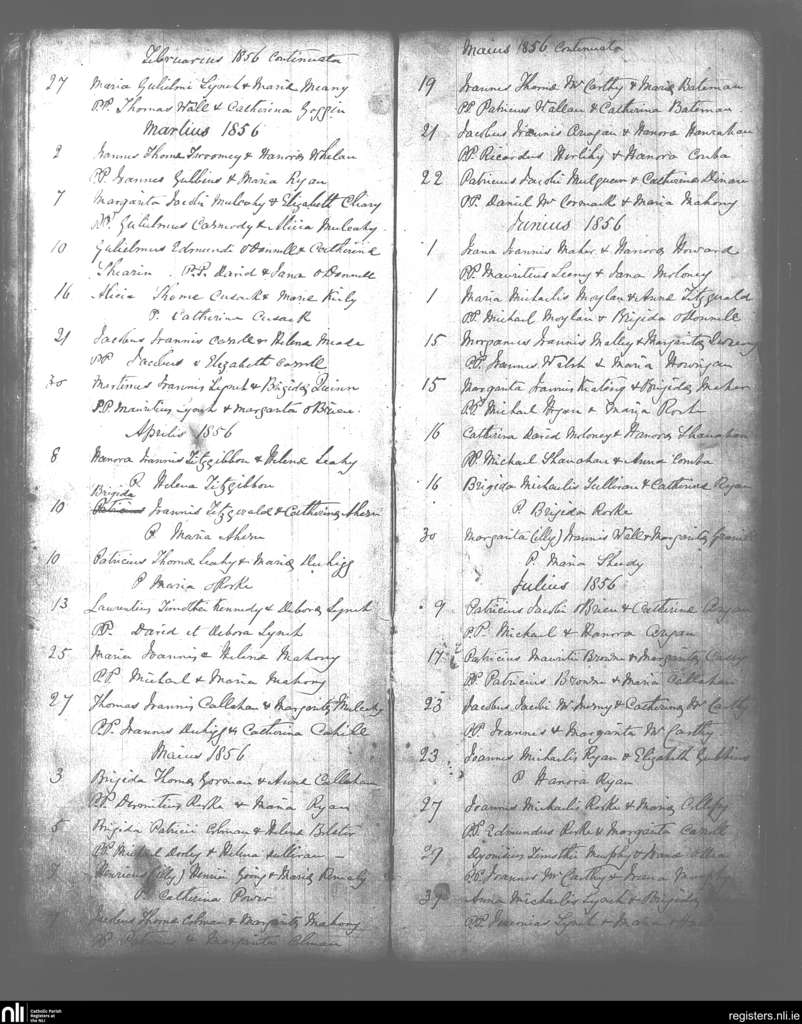 Februarius 1856 Continuata
27 Maria Gulielmi Lynch & Maria Meany
PP. Thomas Wall & Catherina Goggin
Martius 1856
2 Joannes Thoma Twoomey & Hanora Whelan
PP Joannes Gubbins & Maria Ryan
7 Margarita Jacobi Mulcahy & Elizabeth Cliary
PP. Gulielmus Carmody & Alicia Mulcahy
10 Gulielmus Edmundi O'Donnell & Catherina
Shearin . P.P. David & Jana O'Donnell
16 Alicia Thoma Cusack & Maria Kiely
P. Catherina Cusack
21 Jacobus Joannis Carroll & Helena Meade
PP Jacobus & Elizabeth Carroll
30 Martinus Joannis Lynch & Brigida Quinn
P.P. Mauritius Lynch & Margarita O'Brien.
Aprilis 1856
8 Hanora Joannis Fitzgibbon & Helena Leahy
P. Helena Fitzgibbon
Brigida
10 Patricius Joannis Fitzgerald & Catherina Ahern
P. Maria Ahern
10 Patricius Thoma Leahy & Maria Duhigg
P Maria O'Rorke
13 Laurentius Timothei Kennedy & Debora Lynch
PP. David et Debora Lynch
25 Maria Joannis & Helena Mahony
PP Michael & Maria Mahony
27 Thomas Joannis Callahan & Margarita Mulcahy
P.P. Joannes Duhigg & Catherina Cahill
Maius 1856
3 Brigida Thoma Gorman & Anna Callahan
PP. & Maria Ryan
5 Brigida Patricii Colman & Helena
PP Michael Dooley & Helena Sullivan
Henricus (illy) Henrici Going & Maria
P. Catherina Power
Thoma Colman & Margarita Mahony
PP Patricius & Margarita Colman
Maius 1856 Continuata
19 Joannes Thoma McCarthy & Maria Bateman
PP Patricius & Catherina Bateman
21 Jacobus Joannis & Hanora Hanrahan
PP. Ricardus Herlihy & Hanora Comba
22 Patricius Jacobi Mulqueen & Catherina Dinan
PP. Daniel McCormack & Maria Mahony
Junius 1856
1 Joana Joannis Maher & Hanora Howard
PP. Mauritius & Jana Moloney
1 Maria Michaelis Moylan & Anna Fitzgerald
PP. Michael Moylan & Brigida O'Donnell
15 Joannis Malley & Margarita
PP. Joannes Walsh & Maria Hourigan
15 Margarita Joannis Keating & Brigida Maher
PP. Michael Hogan & Maria Rorke
16 Catherina David Moloney & Hanora Shanahan
PP. Michael Shanahan & Anna Comba
16 Brigida Michaelis Sullivan & Catherina Ryan
P. Brigida Rorke
30 Margarita (illy) Joannis Wall & Margarita
P. Maria Sheedy
Julius 1856
9 Patricius Jacobi O'Brien & Catherina Ryan
P.P. Michael & Hanora Ryan
17 Patricius Mauritii Browne & Margarita Casey
PP Patricius Browne & Maria Callahan
23 Jacobus Jacobi & Catherina McCarthy
PP. Joannes & Margarita McCarthy
23 Joannes Michaelis Ryan & Elizabeth Gubbins
P. Hanora Ryan
27 Joannes Michaelis Rorke & Maria
PP. Edmundus Rorke & Margarita Carroll
29 Dyonisius Timothei Murphy &
PP. Joannes McCarthy & Joana Murphy
Anna Michaelis Lynch & Brigida
PP. Lynch & Maria
nli Catholic Parish Registers at the NLI
registers.nli.ie